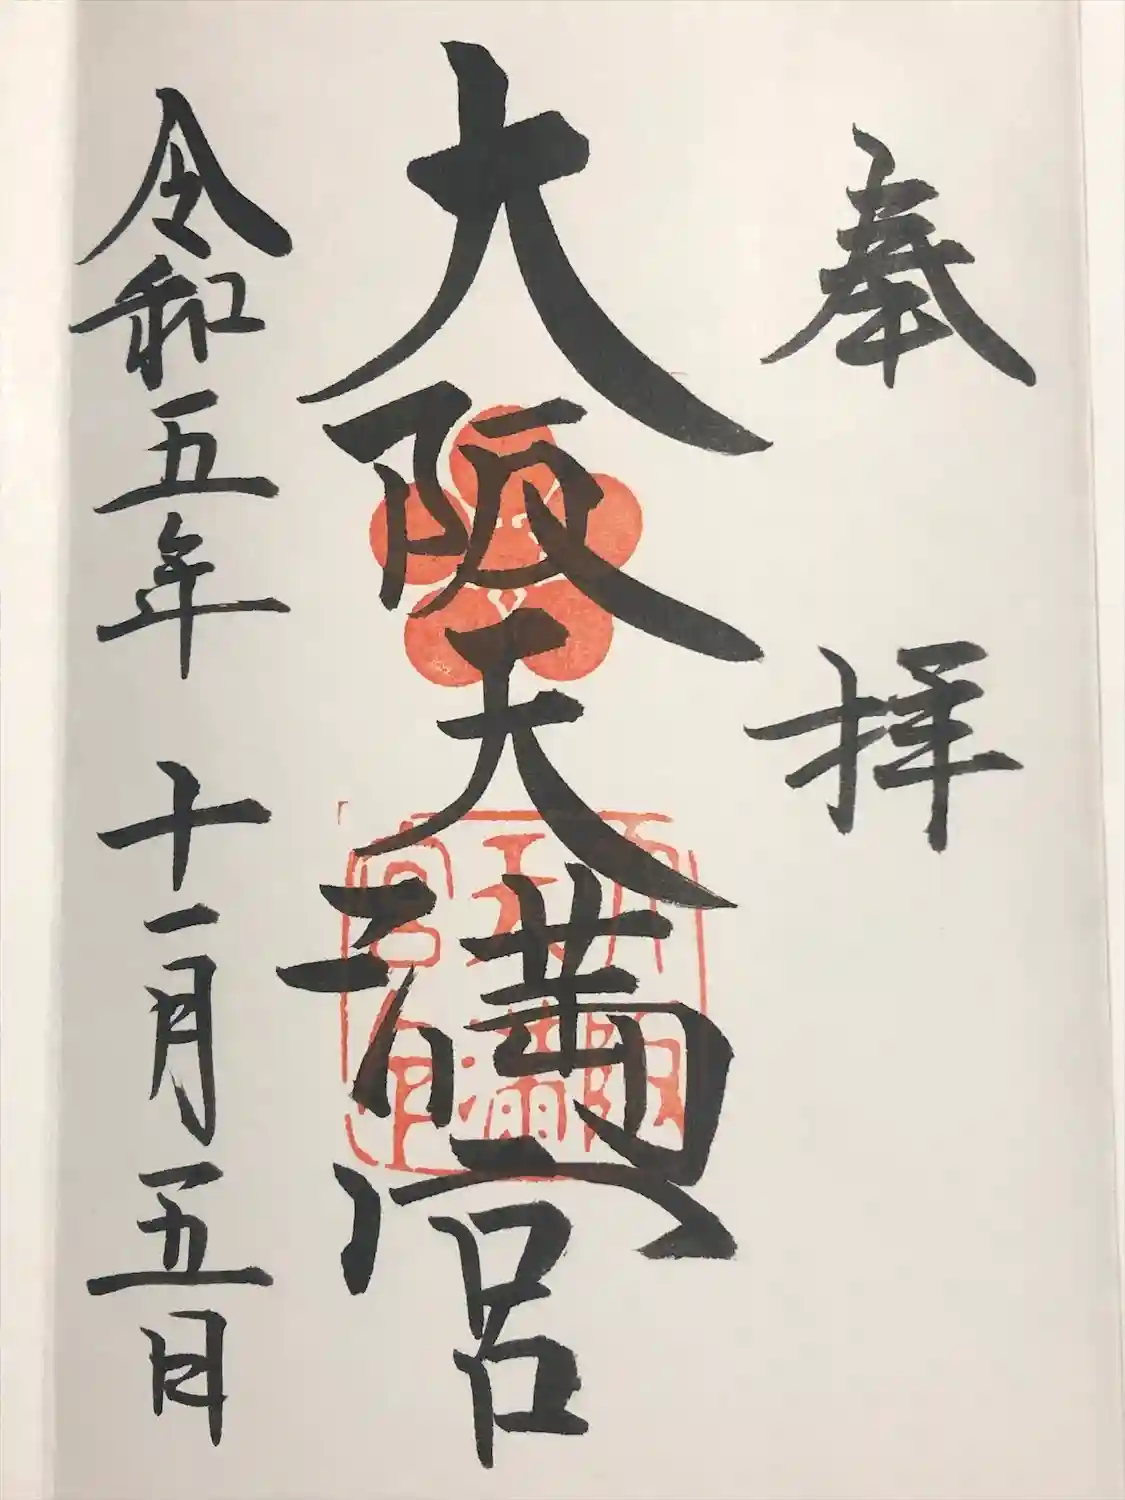 奉拝
大阪天満宮
令和五年 十一月五日
大阪
天満
宮印